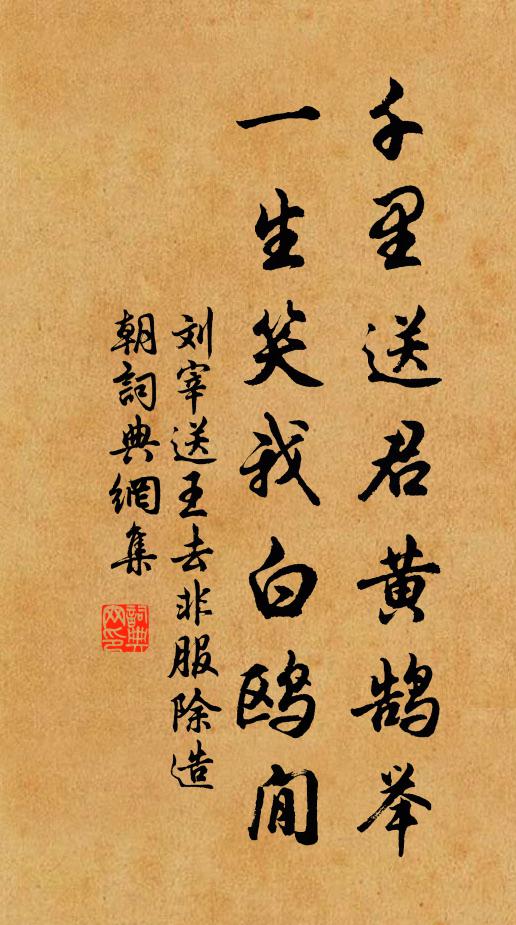 千里送君黄鹄举
一生笑我白鸥閒
刘宰送王去非服除造
朝詞典網集
詞典網印